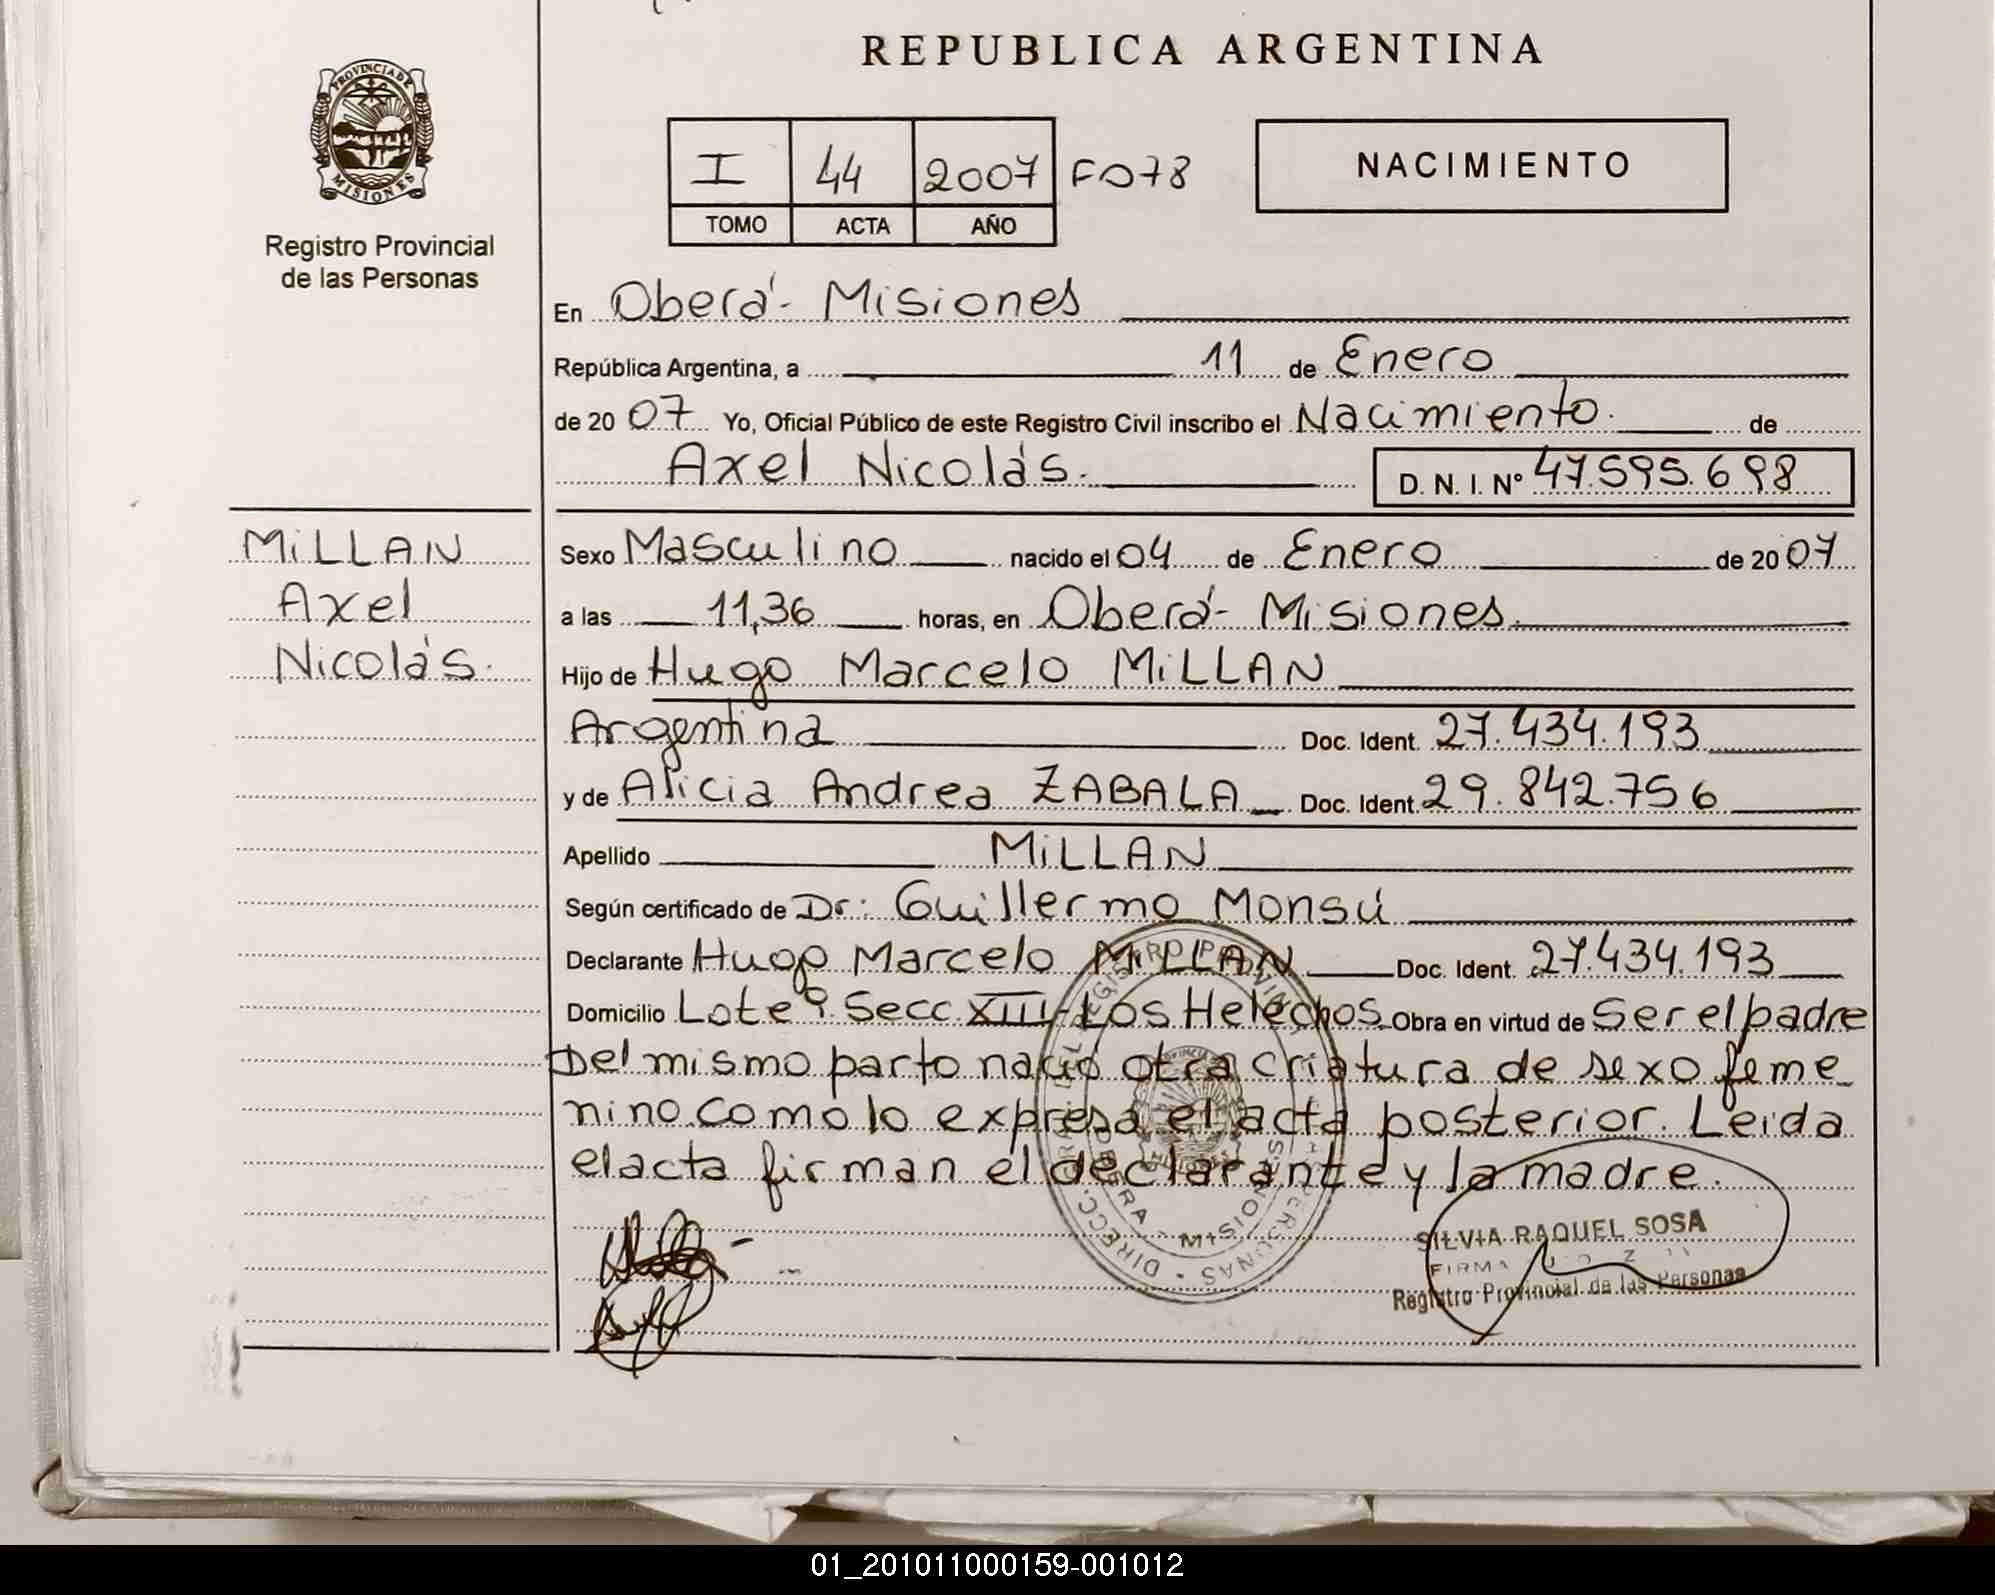 REPUBLICA ARGENTINA
PROVINCIA DE MISIONES
Registro Provincial
de las Personas
I 44 2007 F078
TOMO ACTA AÑO
NACIMIENTO
En Oberá - Misiones
República Argentina, a 11 de Enero
de 2007 Yo, Oficial Público de este Registro Civil inscribo el Nacimiento. de
Axel Nicolás. D. N. I. Nº 47.595.698
MiLLAN
Axel
Nicolás.
Sexo Masculino nacido el 04 de Enero de 2007
a las 11,36 horas, en Oberá - Misiones.
Hijo de Hugo Marcelo MiLLAN
Argentina Doc. Ident. 27.434.193
y de Alicia Andrea ZABALA Doc. Ident. 29.842.756
Apellido MiLLAN
Según certificado de Dr: Guillermo Monsú
Declarante Hugo Marcelo MiLLAN Doc. Ident. 27.434.193
Domicilio Lote Secc XIII - Los Helechos Obra en virtud de Ser el padre
Del mismo parto nació otra criatura de sexo feme
nino como lo expresa el acta posterior. Leida
el acta firman el declarante y la madre.
SILVIA RAQUEL SOSA
FIRMA
Registro Provincial de las Personas
01_201011000159-001012